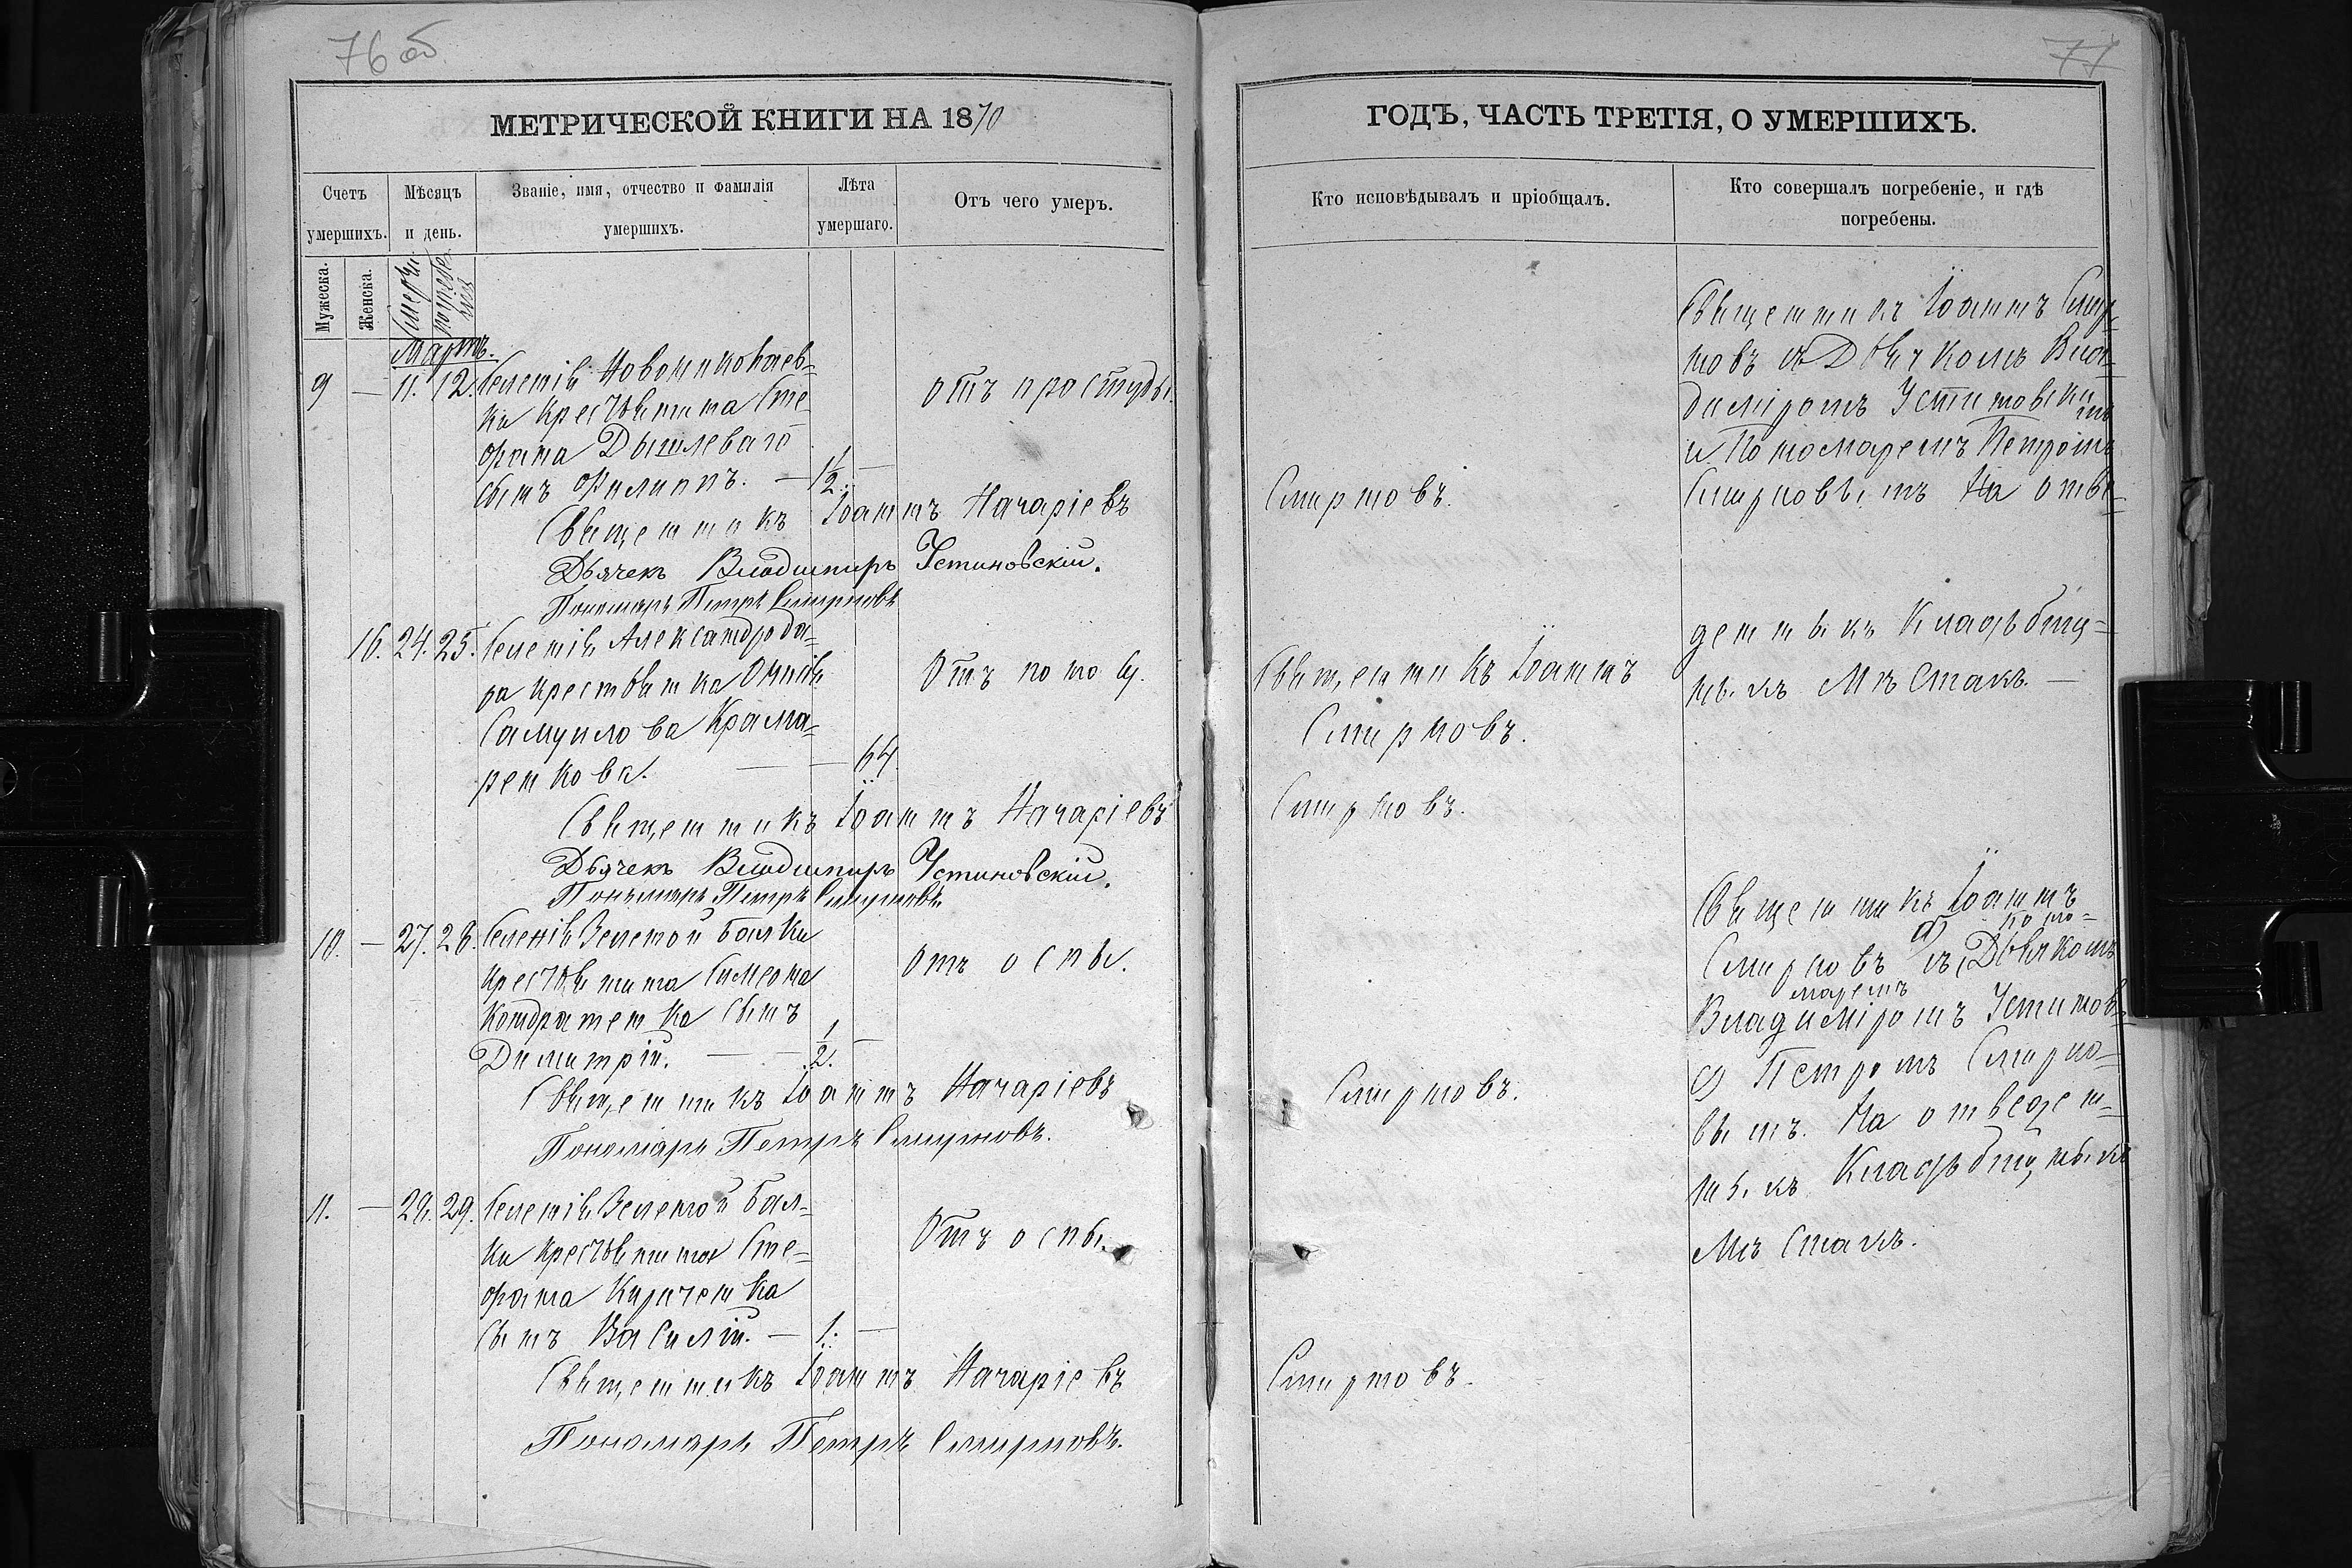 76 об
МЕТРИЧЕСКОЙ КНИГИ НА 1870
Счетъ умершихъ.
Мѣсяцъ и день.
Званіе, имя, отчество и фамилія умершихъ.
Лѣта умершаго.
Отъ чего умеръ.
Мужеска.
Женска.
Смерти
погребенія
Мартъ.
9 — 11. 12. Селенія Новониколаев-
ки крестьянина Сте-
фана Дышлеваго
сынъ Филиппъ. — 1½. —
отъ простуды.
Священникъ Іоаннъ Начаріевъ
Дьячекъ Владимиръ Устиновскій.
Пономарь Петръ Смирновъ
16. 24. 25. Селенія Александрода-
ра крестьянка
Самуилова Крама-
ренкова. — — 64.
Отъ
Священникъ Іоаннъ Начаріевъ
Дьячекъ Владимиръ Устиновскій.
Пономарь Петръ Смирновъ
10. — 27. 28. Селенія Зеленой Балки
крестьянина Симеона
Кондратенка сынъ
Димитрій. — — ½. —
отъ оспы.
Священникъ Іоаннъ Начаріевъ
Пономарь Петръ Смирновъ.
11. — 28. 29. Селенія Зеленой Бал-
ки крестьянина Сте-
фана Кириченка
сынъ Василій. — 1. —
Отъ оспы.
Священникъ Іоаннъ Начаріевъ
Пономарь Петръ Смирновъ.
77
ГОДЪ, ЧАСТЬ ТРЕТІЯ, О УМЕРШИХЪ.
Кто исповѣдывалъ и пріобщалъ.
Кто совершалъ погребеніе, и гдѣ погребены.
Священникъ Іоаннъ Смир-
новъ съ Дьячкомъ Вла-
диміромъ Устиновскимъ
и Пономаремъ Петромъ
Смирновымъ На отве-
Смирновъ.
денныхъ Кладьбищ-
ныхъ Мѣстахъ. —
Священникъ Іоаннъ
Смирновъ.
Смирновъ.
Священникъ Іоаннъ
Смирновъ съ Дьякомъ поно-
маремъ
Владиміромъ Устинов-
Петромъ Смирно-
вымъ. На отведен-
ныхъ Кладьбищныхъ
Мѣстахъ.
Смирновъ.
Смирновъ.